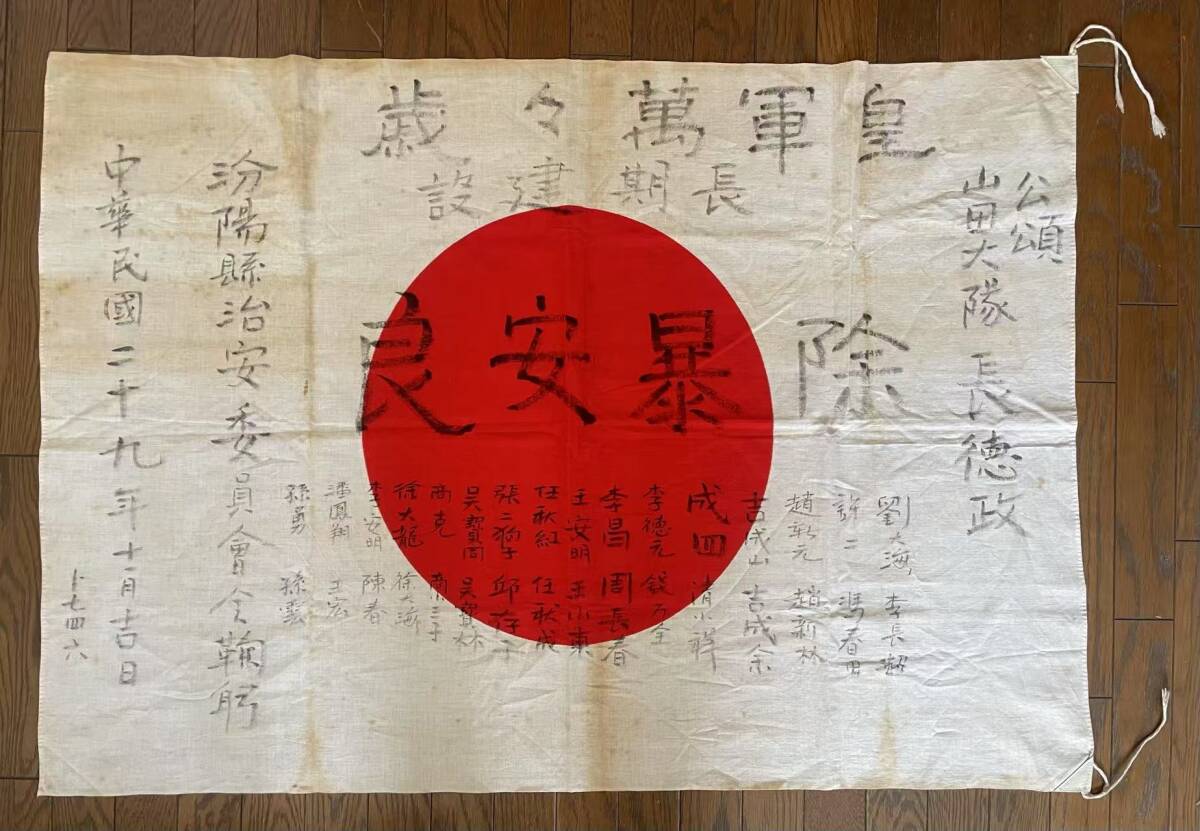 公頌
山田大隊長德政
皇軍萬々歲
長期建設
除暴安良
劉大海 李長超
許二 馮春田
趙新元 趙新林
吉成山 吉成余
成四 清小祥
李德元 錢万全
李昌 周長春
王安明 王小東
任秋紅 任秋成
張二狗子 邱存子
吳寶同 吳寶林
商克 商三子
徐大龍 徐大海
李安明 陳春
潘鳳翔 王宏
孫勇 孫雲
汾陽縣治安委員會全鞠躬
中華民國二十九年十一月吉日